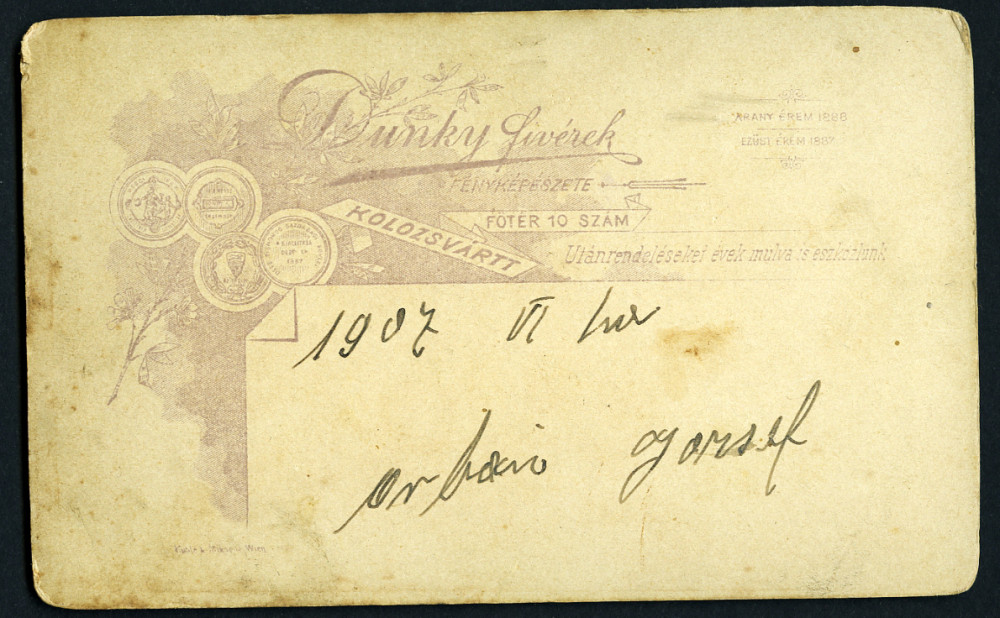 Dunky fivérek
FÉNYKÉPÉSZETE
KOLOZSVÁRTT
FŐTÉR 10 SZÁM
Utánrendeléseket évek mulva is eszközlünk
ARANY ÉREM 1886
EZÜST ÉREM 1887
1907 VI
orbán Jorsef
Wien